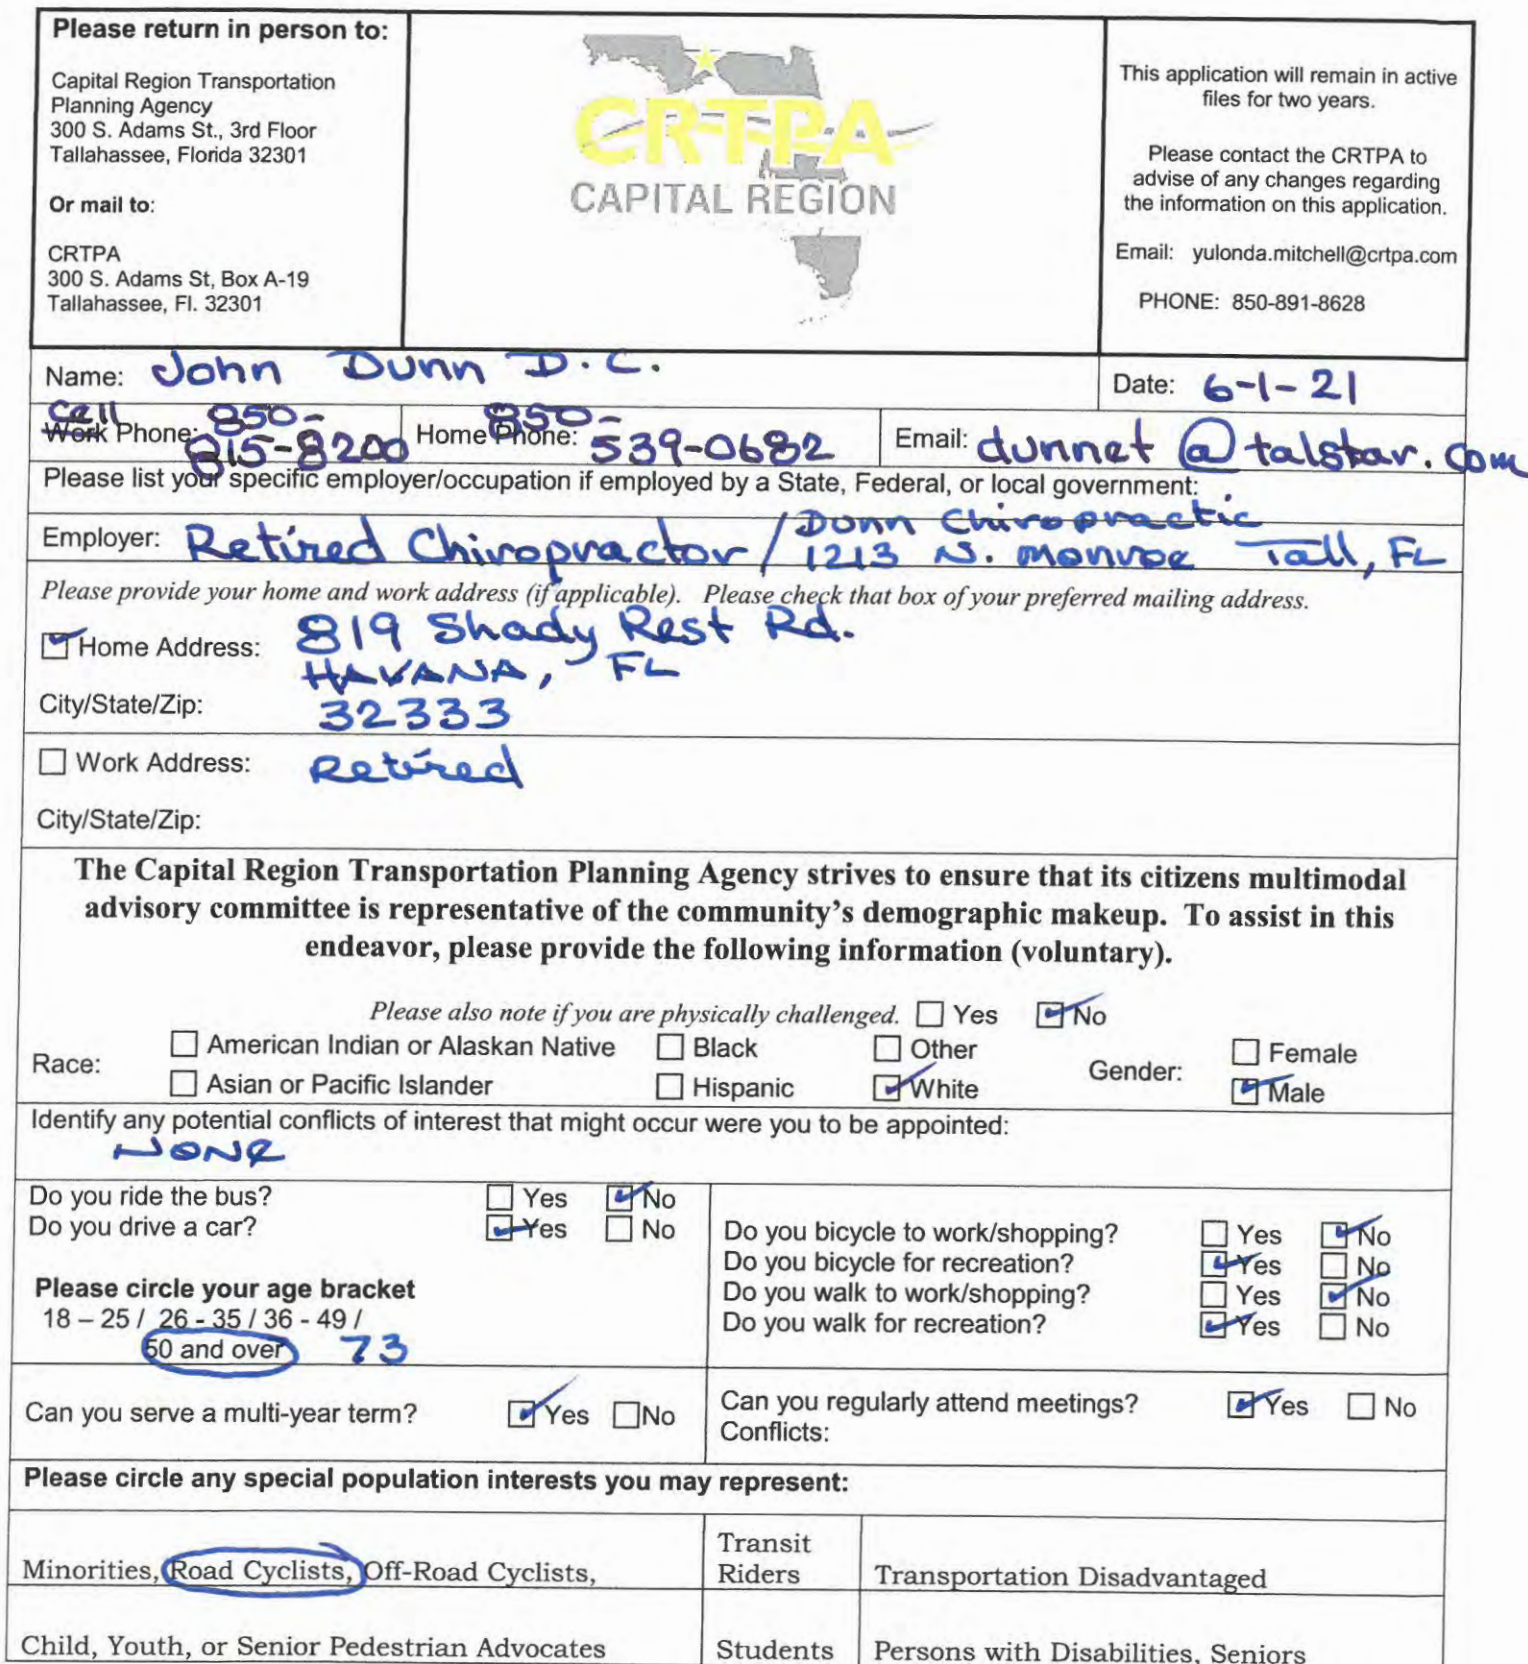 Please return in person to:
Capital Region Transportation
Planning Agency
300 S. Adams St., 3rd Floor
Tallahassee, Florida 32301
Or mail to:
CRTPA
300 S. Adams St, Box A-19
Tallahassee, Fl. 32301
CRTPA
CAPITAL REGION
This application will remain in active
files for two years.
Please contact the CRTPA to
advise of any changes regarding
the information on this application.
Email: yulonda.mitchell@crtpa.com
PHONE: 850-891-8628
Name: John Dunn D.C.
Date: 6-1-21
Cell 850-
Work Phone: 815-8200
850-
Home Phone: 539-0682
Email: dunnet @ talstar.com
Please list your specific employer/occupation if employed by a State, Federal, or local government:
Dunn Chiropractic
Employer: Retired Chiropractor / 1213 N. Monroe Tall, FL
Please provide your home and work address (if applicable). Please check that box of your preferred mailing address.
Home Address: 819 Shady Rest Rd.
HAVANA, FL
City/State/Zip: 32333
Work Address: Retired
City/State/Zip:
The Capital Region Transportation Planning Agency strives to ensure that its citizens multimodal
advisory committee is representative of the community's demographic makeup. To assist in this
endeavor, please provide the following information (voluntary).
Please also note if you are physically challenged. Yes No
American Indian or Alaskan Native Black Other Female
Race: Gender:
Asian or Pacific Islander Hispanic White Male
Identify any potential conflicts of interest that might occur were you to be appointed:
NONE
Do you ride the bus? Yes No
Do you drive a car? Yes No
Please circle your age bracket
18 – 25 / 26 - 35 / 36 - 49 /
50 and over 73
Do you bicycle to work/shopping? Yes No
Do you bicycle for recreation? Yes No
Do you walk to work/shopping? Yes No
Do you walk for recreation? Yes No
Can you serve a multi-year term? Yes No
Can you regularly attend meetings? Yes No
Conflicts:
Please circle any special population interests you may represent:
Minorities, Road Cyclists, Off-Road Cyclists,
Transit
Riders
Transportation Disadvantaged
Child, Youth, or Senior Pedestrian Advocates
Students
Persons with Disabilities, Seniors